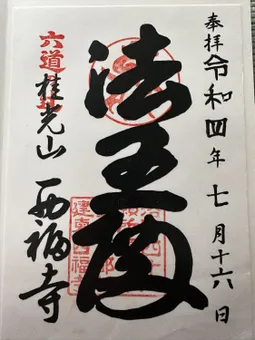 奉拝 令和四年七月十六日
法王殿
六道 桂光山 西福寺